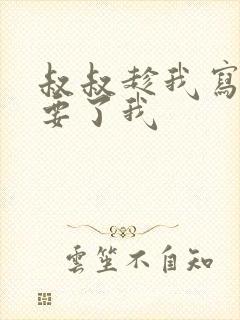 叔叔趁我寫
要了我
雲笙不自知